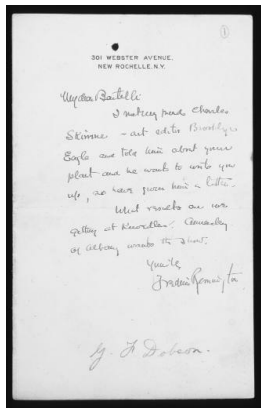 1
301 WEBSTER AVENUE,
NEW ROCHELLE, N.Y.
My dear Bertelli
Charles
Skinner - art editor Brooklyn
Eagle and told him about your
plant and he wants to write you
up, so have given him a letter.
What results are
getting at
of Albany wants to
Yours
Frederic Remington